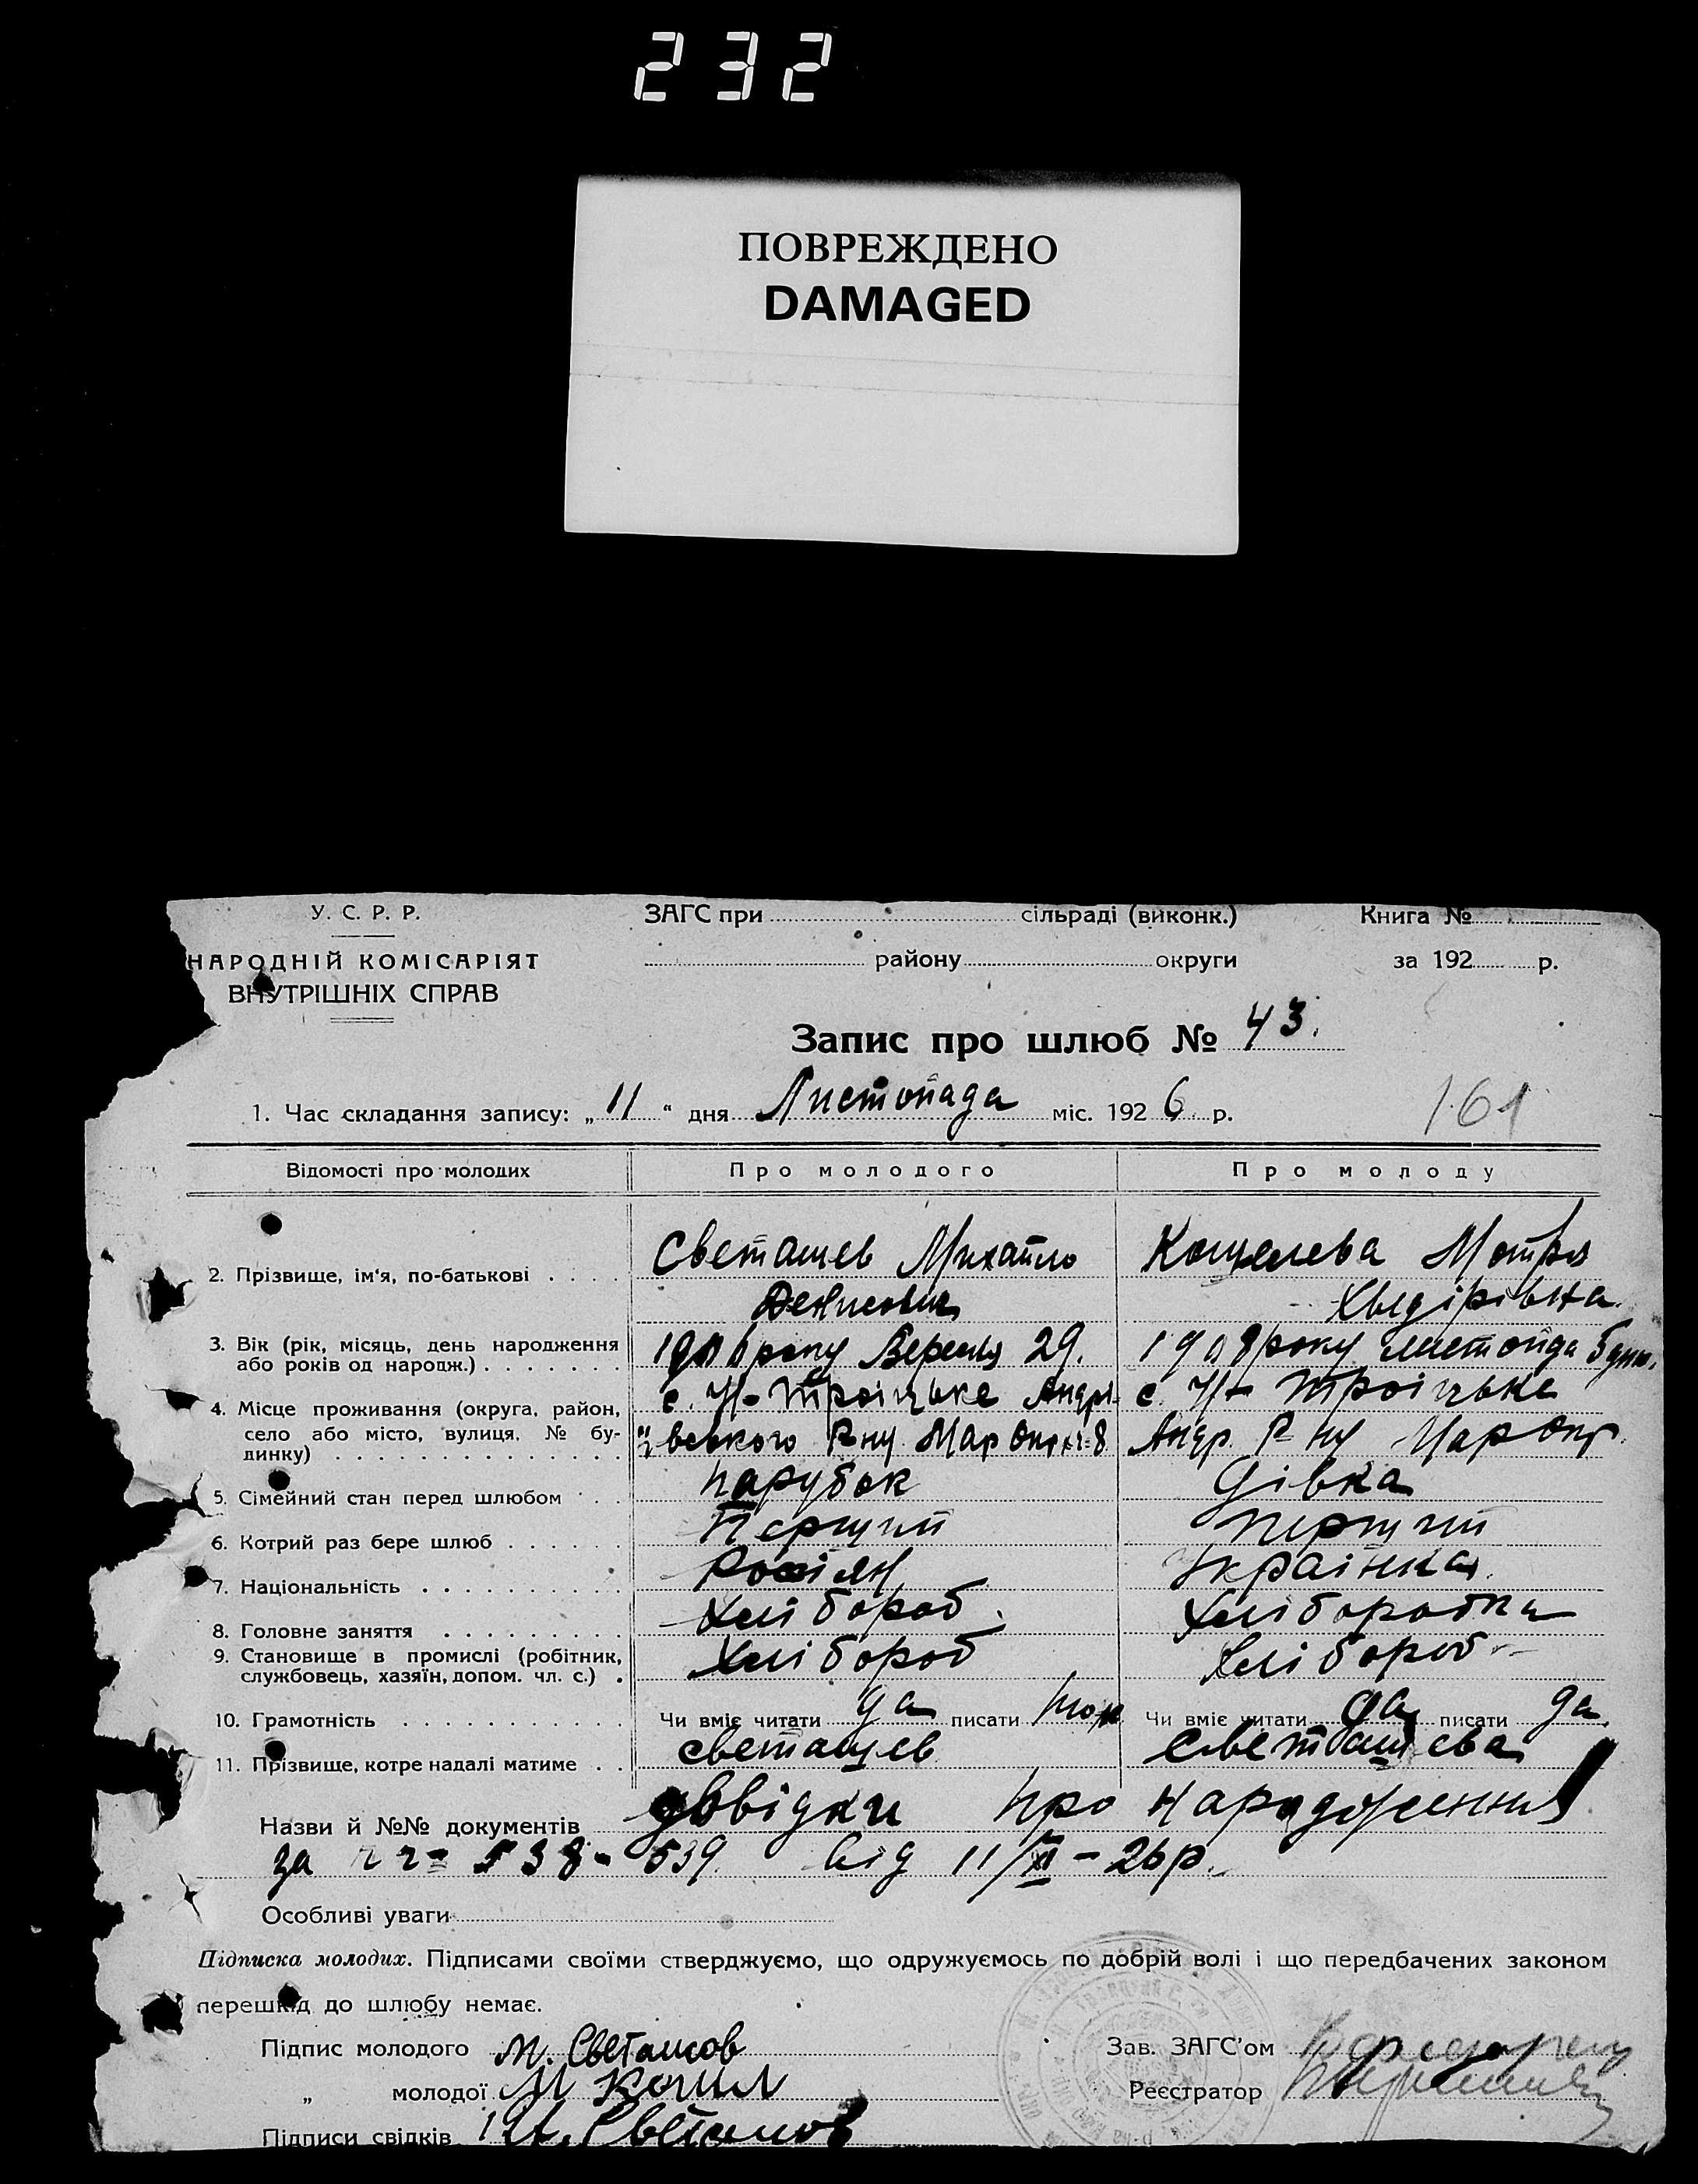 232
ПОВРЕЖДЕНО
DAMAGED
У. С. Р. Р.
НАРОДНІЙ КОМІСАРІЯТ
ВНУТРІШНІХ СПРАВ
ЗАГС при сільраді (виконк.)
району округи
Книга №
за 192 р.
Запис про шлюб № 43.
1. Час складання запису: „ 11 “ дня Листопада міс. 192 6 р.
161
Відомості про молодих Про молодого Про молоду
2. Прізвище, ім'я, по-батькові . . . . Светашев Михайло Кошелева Мотря
Денисович Хведірівна.
3. Вік (рік, місяць, день народження 1906 року Вересня 29. 1908 року листопада 5 дня.
або років од народж.) . . . . . . .
4. Місце проживання (округа, район, с. Н-Троіцьке Андрі- с. Н-Троіцьке
село або місто, вулиця, № бу- вського Р-ну Мар Андр. Р-ну Мар Окр.
динку) . . . . . . . . . . . . . .
5. Сімейний стан перед шлюбом . . парубок дівка
6. Котрий раз бере шлюб . . . . . . Перший перший
7. Національність . . . . . . . . . . Росіян Украінка.
8. Головне заняття . . . . . . . . . Хлібороб. Хліборобка
9. Становище в промислі (робітник, Хлібороб Хлібороб
службовець, хазяїн, допом. чл. с.) .
10. Грамотність . . . . . . . . . . . Чи вміє читати да писати тож Чи вміє читати да писати да.
11. Прізвище, котре надалі матиме . . Светашев Светашева
Назви й №№ документів довідки про народження
за 538-539. від 11/XI-26р.
Особливі уваги
Підписка молодих. Підписами своїми стверджуємо, що одружуємось по добрій волі і що передбачених законом
перешкод до шлюбу немає.
Підпис молодого М. Светашов Зав. ЗАГС'ом
„ молодої М Кошел Реєстратор
Підписи свідків 1